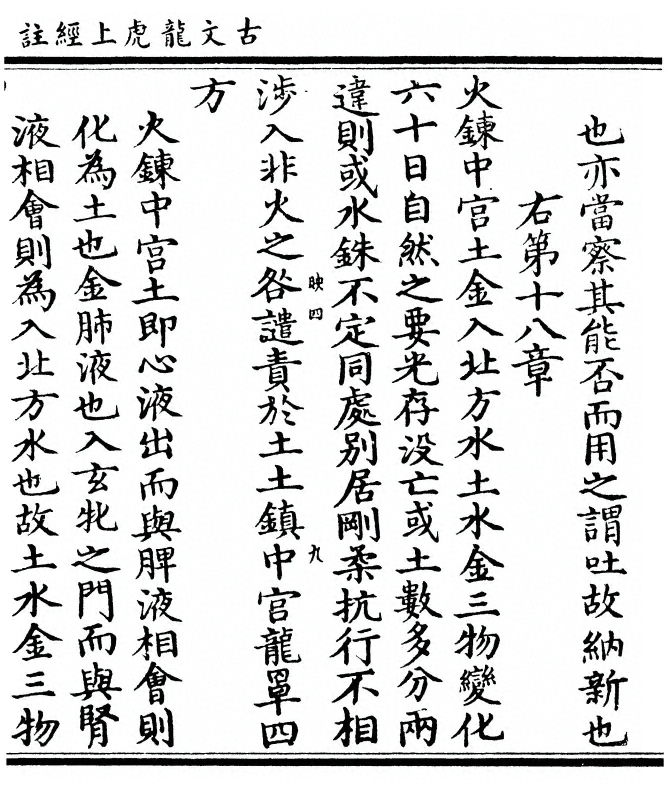 古文龍虎上經註
也亦當察其能否而用之謂吐故納新也
右第十八章
火鍊中宮土金入北方水土水金三物變化
六十日自然之要光存没亡或土數多分兩
違則或水銖不定同處别居剛柔抗行不相
映四
九
涉入非火之咎譴責於土土鎮中宮龍罩四
方
火鍊中宮土即心液出而與脾液相會則
化為土也金肺液也入玄牝之門而與腎
液相會則為入北方水也故土水金三物